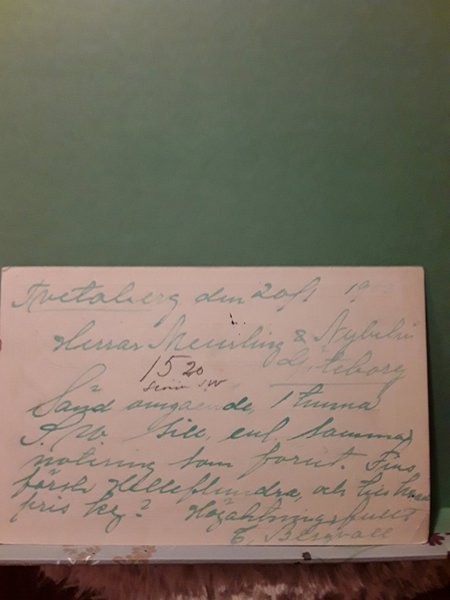 Tvetaberg den 20/1 19
Herrar Meurling & Nybelin
Göteborg
15 20
Sänd omgående 1 tunna
S. W. Sill, enl. samma
notering som förut. Fins
färsk Helleflundra, och
pris kg? Högaktningsfullt
E. Bergvall